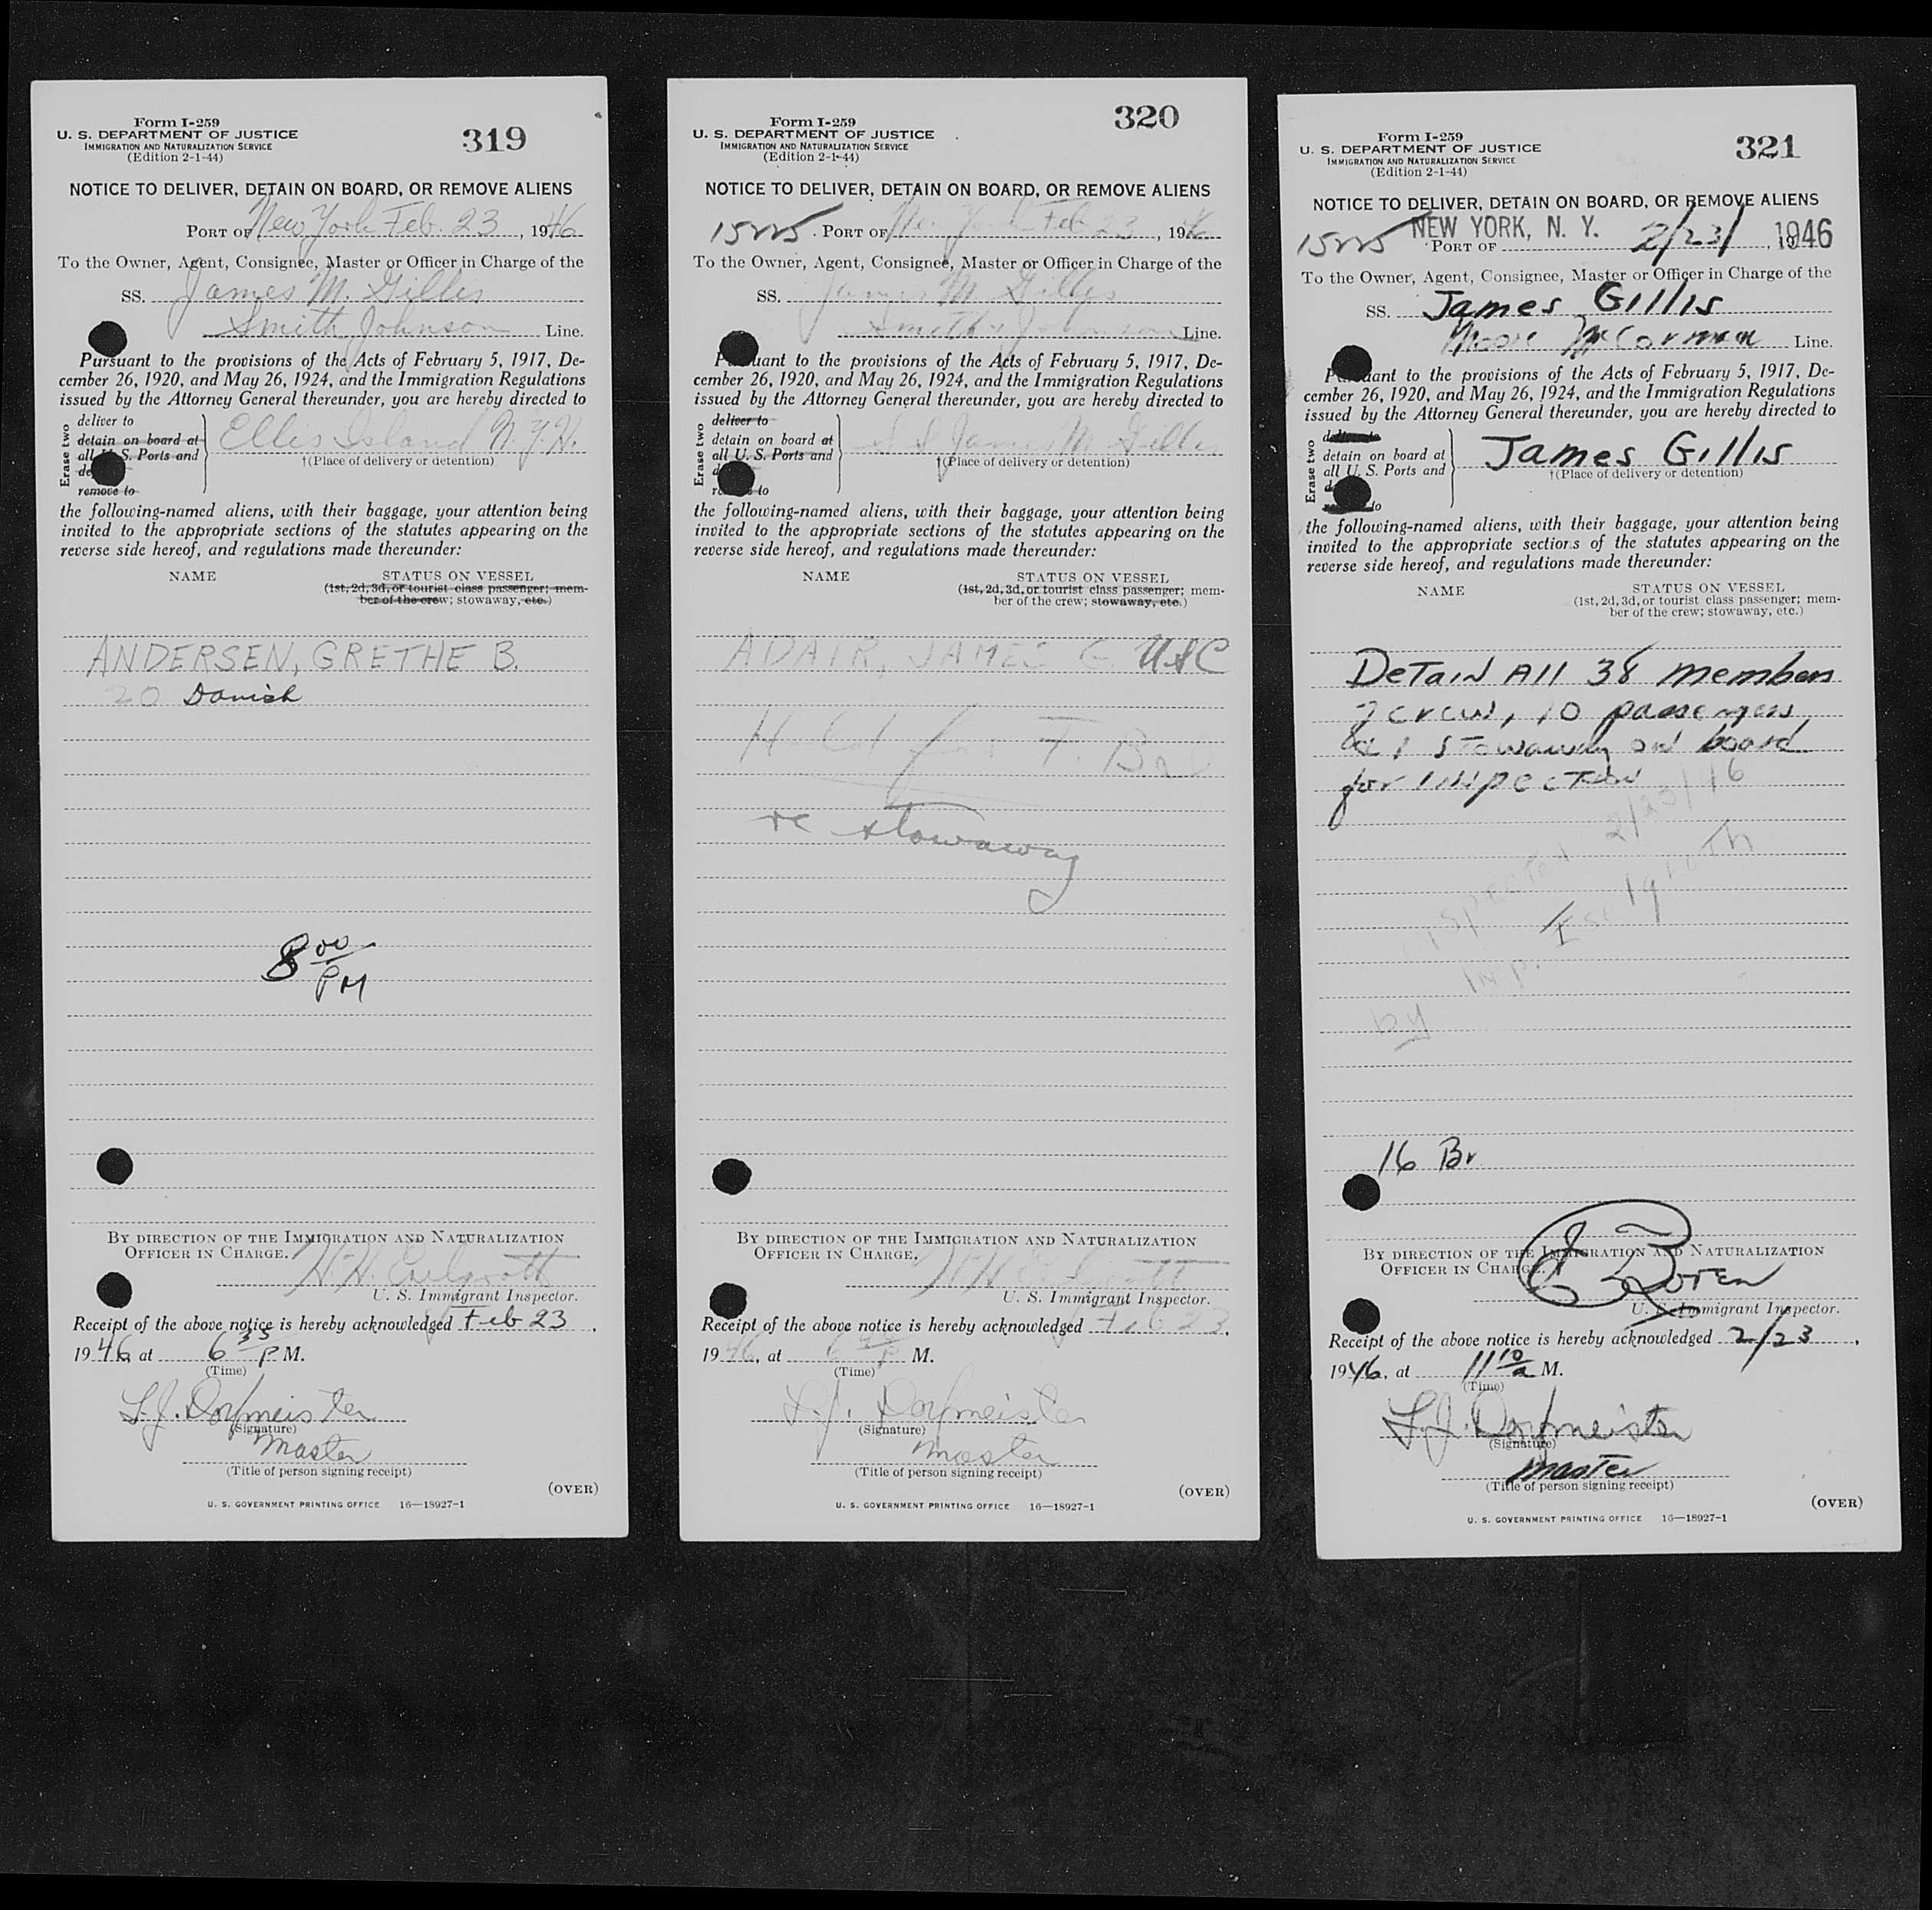 Form I-259
U. S. DEPARTMENT OF JUSTICE
IMMIGRATION AND NATURALIZATION SERVICE
(Edition 2-1-44)
319
NOTICE TO DELIVER, DETAIN ON BOARD, OR REMOVE ALIENS
PORT OF New York Feb. 23, 1946
To the Owner, Agent, Consignee, Master or Officer in Charge of the
SS. James M. Gillis
Smith Johnson Line.
Pursuant to the provisions of the Acts of February 5, 1917, De-
cember 26, 1920, and May 26, 1924, and the Immigration Regulations
issued by the Attorney General thereunder, you are hereby directed to
Erase two
deliver to
detain on board at
all U. S. Ports and
remove to
Ellis Island N.Y.H.
†(Place of delivery or detention)
the following-named aliens, with their baggage, your attention being
invited to the appropriate sections of the statutes appearing on the
reverse side hereof, and regulations made thereunder:
NAME STATUS ON VESSEL
(1st, 2d, 3d, or tourist class passenger; mem-
ber of the crew; stowaway, etc.)
ANDERSEN, GRETHE B.
20 Danish
8 00
PM
BY DIRECTION OF THE IMMIGRATION AND NATURALIZATION
OFFICER IN CHARGE.
U. S. Immigrant Inspector.
Receipt of the above notice is hereby acknowledged Feb 23,
1946, at 6 35 P. M.
(Time)
L.J. Dorfmeister
(Signature)
Master
(Title of person signing receipt)
(OVER)
U. S. GOVERNMENT PRINTING OFFICE 16—18927-1
Form I-259
U. S. DEPARTMENT OF JUSTICE
IMMIGRATION AND NATURALIZATION SERVICE
(Edition 2-1-44)
320
NOTICE TO DELIVER, DETAIN ON BOARD, OR REMOVE ALIENS
PORT OF New York Feb 23, 1946
To the Owner, Agent, Consignee, Master or Officer in Charge of the
SS. James M Gillis
Smith & Johnson Line.
Pursuant to the provisions of the Acts of February 5, 1917, De-
cember 26, 1920, and May 26, 1924, and the Immigration Regulations
issued by the Attorney General thereunder, you are hereby directed to
Erase two
deliver to
detain on board at
all U. S. Ports and
remove to
SS James M. Gillis
†(Place of delivery or detention)
the following-named aliens, with their baggage, your attention being
invited to the appropriate sections of the statutes appearing on the
reverse side hereof, and regulations made thereunder:
NAME STATUS ON VESSEL
(1st, 2d, 3d, or tourist class passenger; mem-
ber of the crew; stowaway, etc.)
ADAIR, JAMES G. USC
Held for
re stowaway
BY DIRECTION OF THE IMMIGRATION AND NATURALIZATION
OFFICER IN CHARGE.
U. S. Immigrant Inspector.
Receipt of the above notice is hereby acknowledged Feb 23,
1946, at 6 P M.
(Time)
L.J. Dorfmeister
(Signature)
Master
(Title of person signing receipt)
(OVER)
U. S. GOVERNMENT PRINTING OFFICE 16—18927-1
Form I-259
U. S. DEPARTMENT OF JUSTICE
IMMIGRATION AND NATURALIZATION SERVICE
(Edition 2-1-44)
321
NOTICE TO DELIVER, DETAIN ON BOARD, OR REMOVE ALIENS
NEW YORK, N. Y.
PORT OF 2/23/, 1946
To the Owner, Agent, Consignee, Master or Officer in Charge of the
SS. James Gillis
Moore McCormack Line.
Pursuant to the provisions of the Acts of February 5, 1917, De-
cember 26, 1920, and May 26, 1924, and the Immigration Regulations
issued by the Attorney General thereunder, you are hereby directed to
Erase two
detain on board at
all U. S. Ports and
James Gillis
†(Place of delivery or detention)
the following-named aliens, with their baggage, your attention being
invited to the appropriate sections of the statutes appearing on the
reverse side hereof, and regulations made thereunder:
NAME STATUS ON VESSEL
(1st, 2d, 3d, or tourist class passenger; mem-
ber of the crew; stowaway, etc.)
Detain All 38 members
of crew, 10 passengers,
& 1 stowaway on board
for inspection
inspected 2/23/46
by Insp.
16 Br
BY DIRECTION OF THE IMMIGRATION AND NATURALIZATION
OFFICER IN CHARGE.
U. S. Immigrant Inspector.
Receipt of the above notice is hereby acknowledged 2/23,
1946, at 11 10 a M.
(Time)
L.J. Dorfmeister
(Signature)
Master
(Title of person signing receipt)
(OVER)
U. S. GOVERNMENT PRINTING OFFICE 16—18927-1